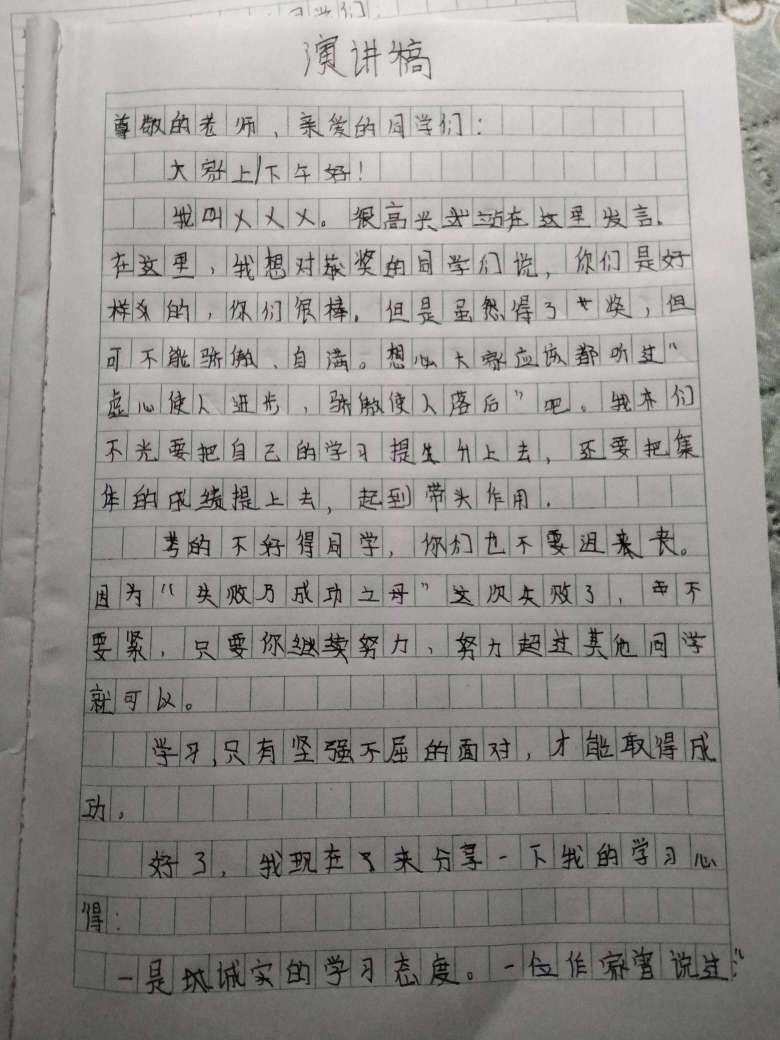 同学们：
演讲稿
尊敬的老师，亲爱的同学们：
大家上/下午好！
我叫乂乂乂。很高兴站在这里发言.
在这里，我想对获奖的同学们说，你们是好
样的，你们很棒。但是虽然得了奖，但
可不能骄傲、自满。想心大家应该都听过“
虚心使人进步，骄傲使人落后”吧。我们
不光要把自己的学习提升上去，还要把集
体的成绩提上去，起到带头作用.
考的不好得同学，你们也不要沮丧。
因为“失败乃成功之母”这次失败了，不
要紧，只要你继续努力、努力超过其他同学
就可以。
学习,只有坚强不屈的面对，才能取得成
功.
好了，我现在来分享一下我的学习心
得：
一是诚实的学习态度。一位作家曾说过:“